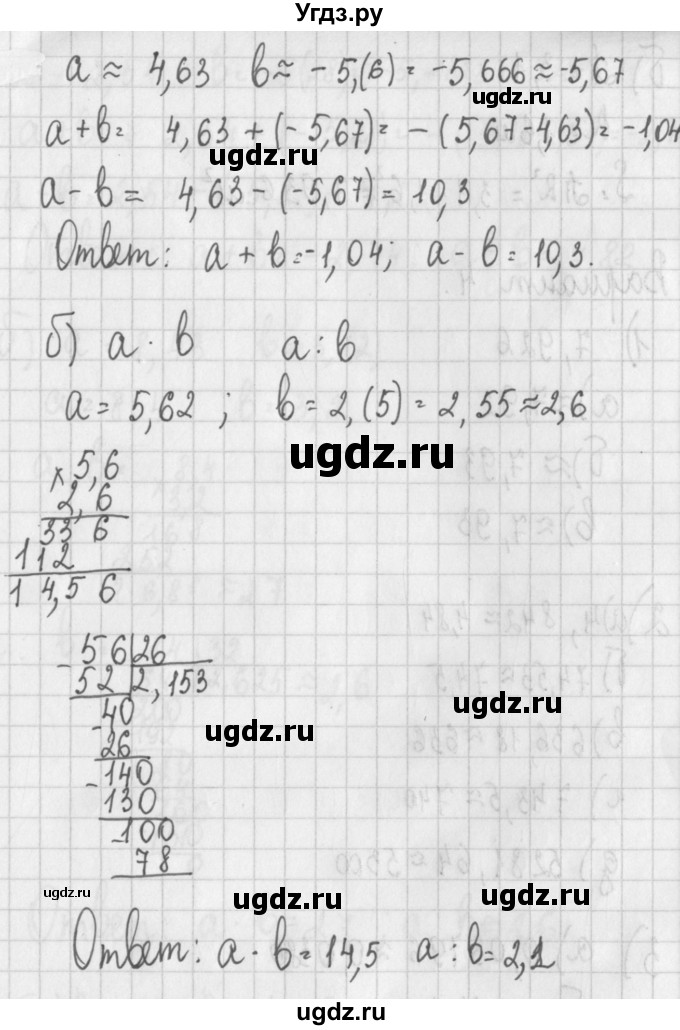 Угдз.ру
a ≈ 4,63 b ≈ - 5,(6) = -5,666 ≈ -5,67
ugdz.ru
a + b = 4,63 + (- 5,67) = - (5,67 - 4,63) = -1,04
ugdz.ru
a - b = 4,63 - (-5,67) = 10,3
Ответ: a + b = -1,04; a - b = 10,3.
б) a · b a : b
a = 5,62 ; b = 2,(5) = 2,55 ≈ 2,6
ugdz.ru
× 5,6
2,6
33 6
112
14,56
- 56 26
52 2,153
- 40
26
- 140
130
- 100
78
ugdz.ru
ugdz.ru
ugdz.ru
ugdz.ru
ugdz.ru
Ответ: a · b = 14,5 a : b = 2,2
ugdz.ru